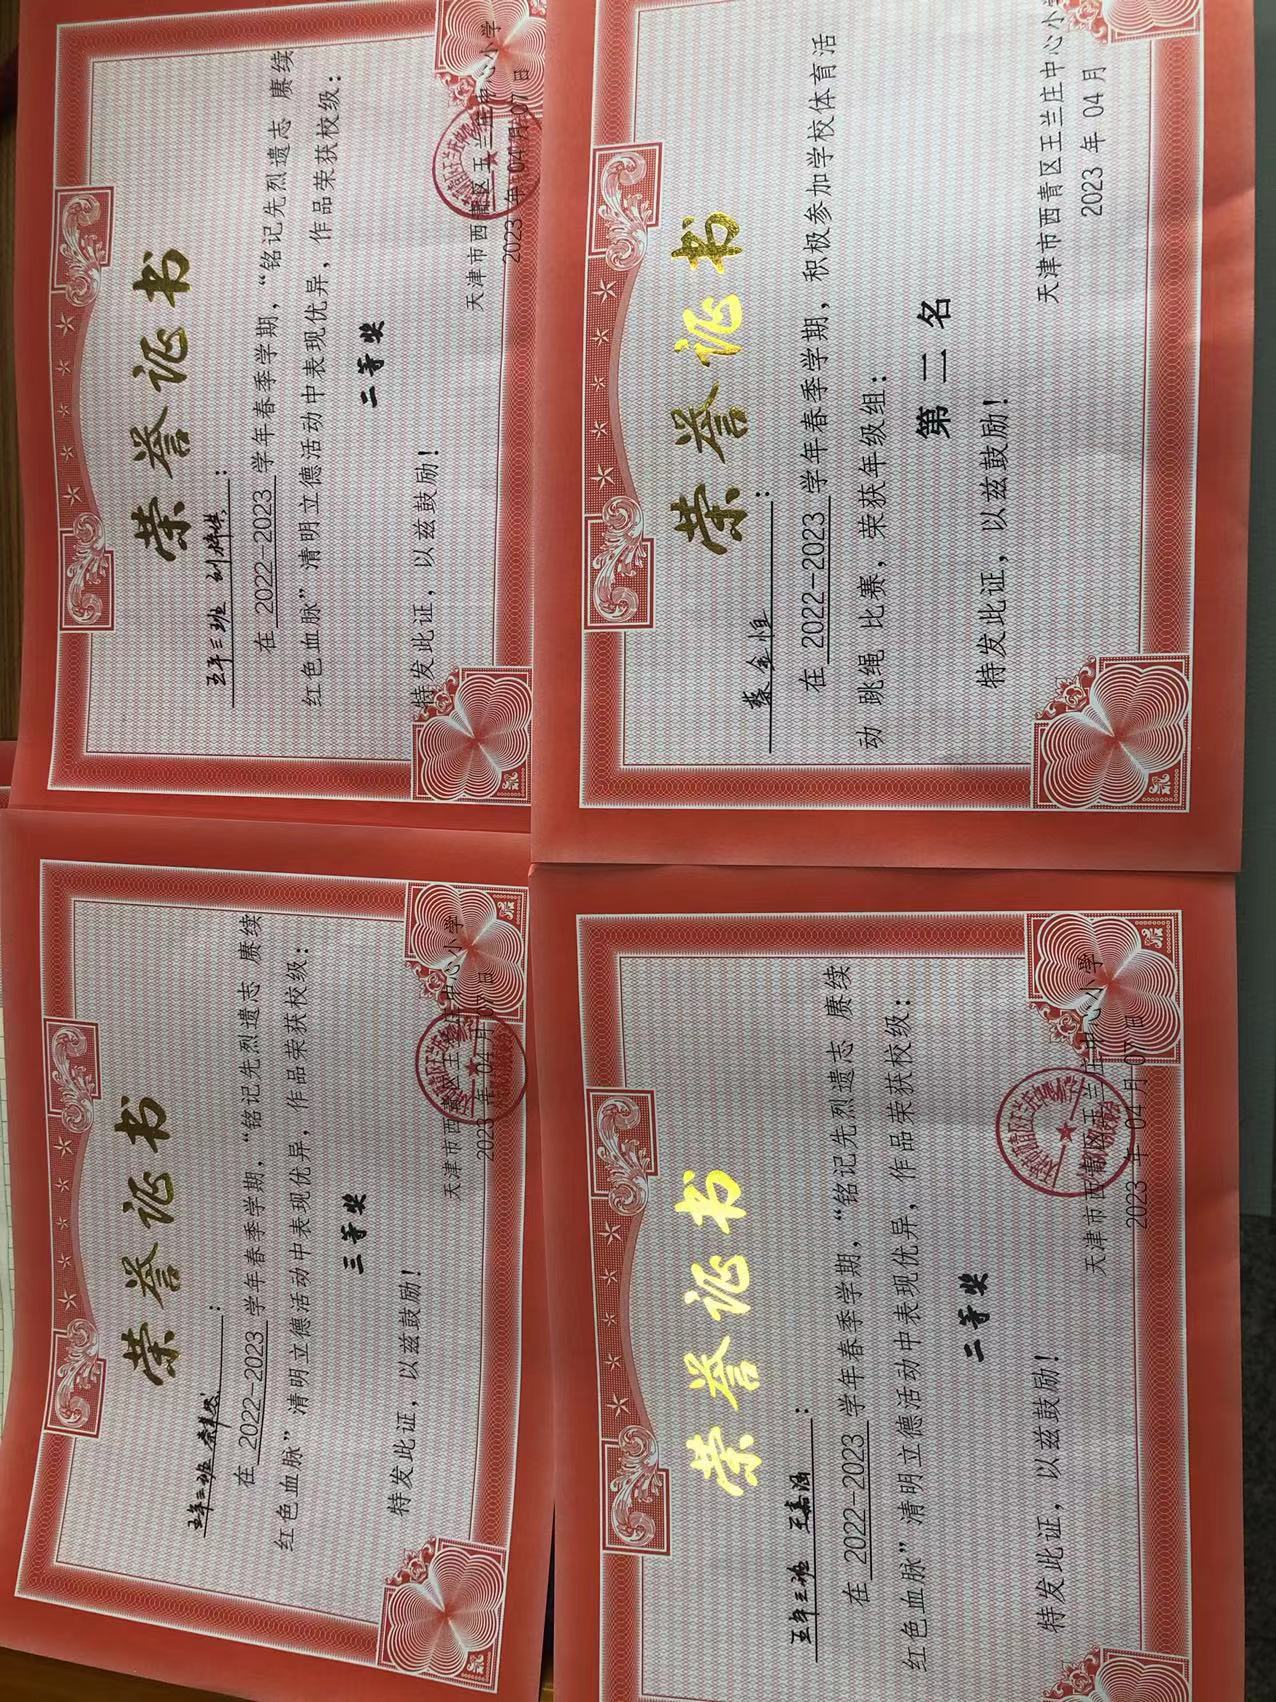 荣誉证书
五年三班
在 2022-2023 学年春季学期，“铭记先烈遗志 赓续
红色血脉”清明立德活动中表现优异，作品荣获校级：
三等奖
特发此证，以兹鼓励！
天津市西青区王兰庄中心小学
2023 年 04 月 07 日
荣誉证书
五年三班 刘梓琪：
在 2022-2023 学年春季学期，“铭记先烈遗志 赓续
红色血脉”清明立德活动中表现优异，作品荣获校级：
二等奖
特发此证，以兹鼓励！
天津市西青区王兰庄中心小学
2023 年 04 月 07 日
荣誉证书
五年三班 王嘉涵：
在 2022-2023 学年春季学期，“铭记先烈遗志 赓续
红色血脉”清明立德活动中表现优异，作品荣获校级：
二等奖
特发此证，以兹鼓励！
天津市西青区王兰庄中心小学
2023 年 04 月 07 日
荣誉证书
金恒：
在 2022-2023 学年春季学期，积极参加学校体育活
动 跳绳 比赛，荣获年级组：
第二名
特发此证，以兹鼓励！
天津市西青区王兰庄中心小学
2023 年 04 月